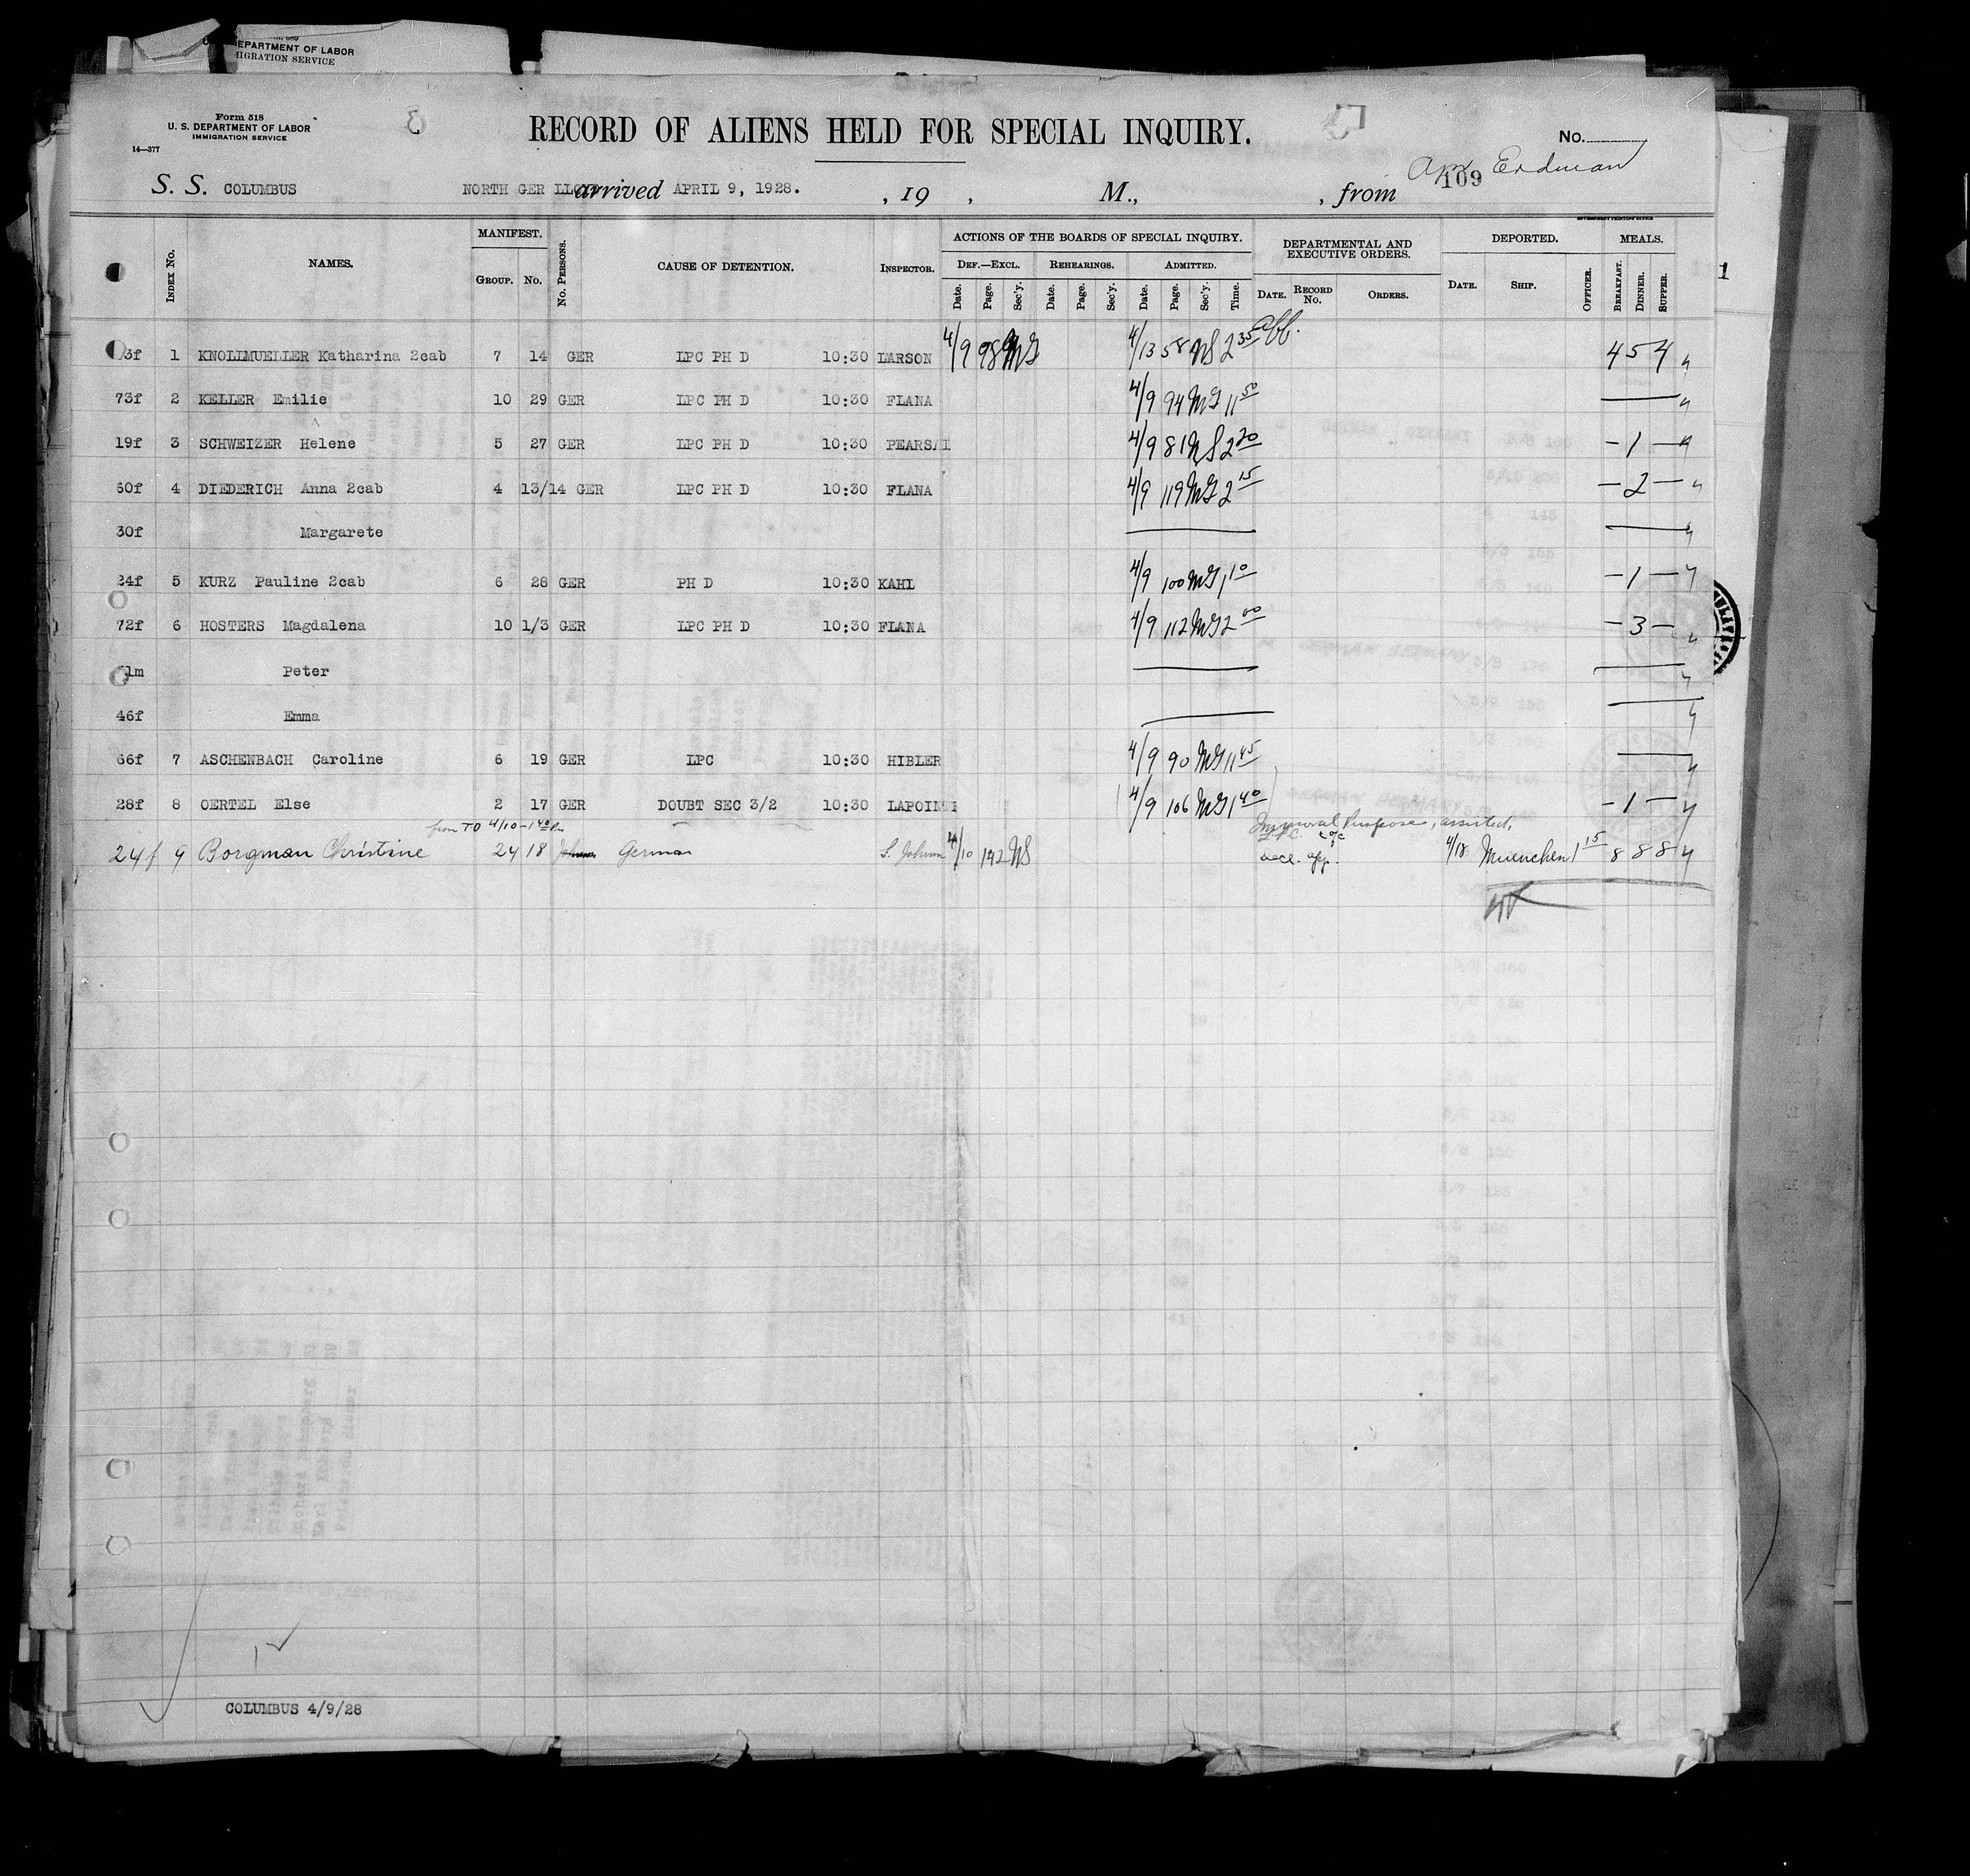 EPARTMENT OF LABOR
MIGRATION SERVICE
Form 518
U. S. DEPARTMENT OF LABOR
IMMIGRATION SERVICE
14—377
RECORD OF ALIENS HELD FOR SPECIAL INQUIRY.
No.
Erdman
109
S. S. COLUMBUS NORTH GER LLOYD arrived APRIL 9, 1928. , 19 , M., , from
GOVERNMENT PRINTING OFFICE
Index No. NAMES. MANIFEST. Group. No. No. Persons. CAUSE OF DETENTION. Inspector. ACTIONS OF THE BOARDS OF SPECIAL INQUIRY. Def.—Excl. Date. Page. Sec'y. Rehearings. Date. Page. Sec'y. Admitted. Date. Page. Sec'y. Time. DEPARTMENTAL AND EXECUTIVE ORDERS. Date. Record No. Orders. DEPORTED. Date. Ship. Officer. MEALS. Breakfast. Dinner. Supper.
1
3f 1 KNOLLMUELLER Katharina 2cab 7 14 GER LPC PH D 10:30 LARSON 4/9 98 MG 4/13 58 NS 2 35 4 5 4
73f 2 KELLER Emilie 10 29 GER LPC PH D 10:30 FLANA 4/9 94 MG 11 50 —
19f 3 SCHWEIZER Helene 5 27 GER LPC PH D 10:30 PEARSAL 4/9 81 NS 2 20 – 1 –
60f 4 DIEDERICH Anna 2cab 4 13/14 GER LPC PH D 10:30 FLANA 4/9 119 MG 2 15 – 2 –
30f Margarete — —
24f 5 KURZ Pauline 2cab 6 28 GER PH D 10:30 KAHL 4/9 100 MG 1 10 – 1 –
72f 6 HOSTERS Magdalena 10 1/3 GER LPC PH D 10:30 FLANA 4/9 112 MG 2 00 – 3 –
1m Peter — —
46f Emma — —
66f 7 ASCHENBACH Caroline 6 19 GER LPC 10:30 HIBLER 4/9 90 MG 11 45 —
28f 8 OERTEL Else 2 17 GER DOUBT SEC 3/2 10:30 LAPOINTE 4/9 106 MG 1 40 – 1 –
from TO 4/10 – 1 40 Pm
Immoral Purpose, assisted,
L.P.C.
24f 9 Borgman Christine 24 18 German S. Johnson 4/10 142 NS 4/18 Muenchen 1 15 8 8 8
COLUMBUS 4/9/28